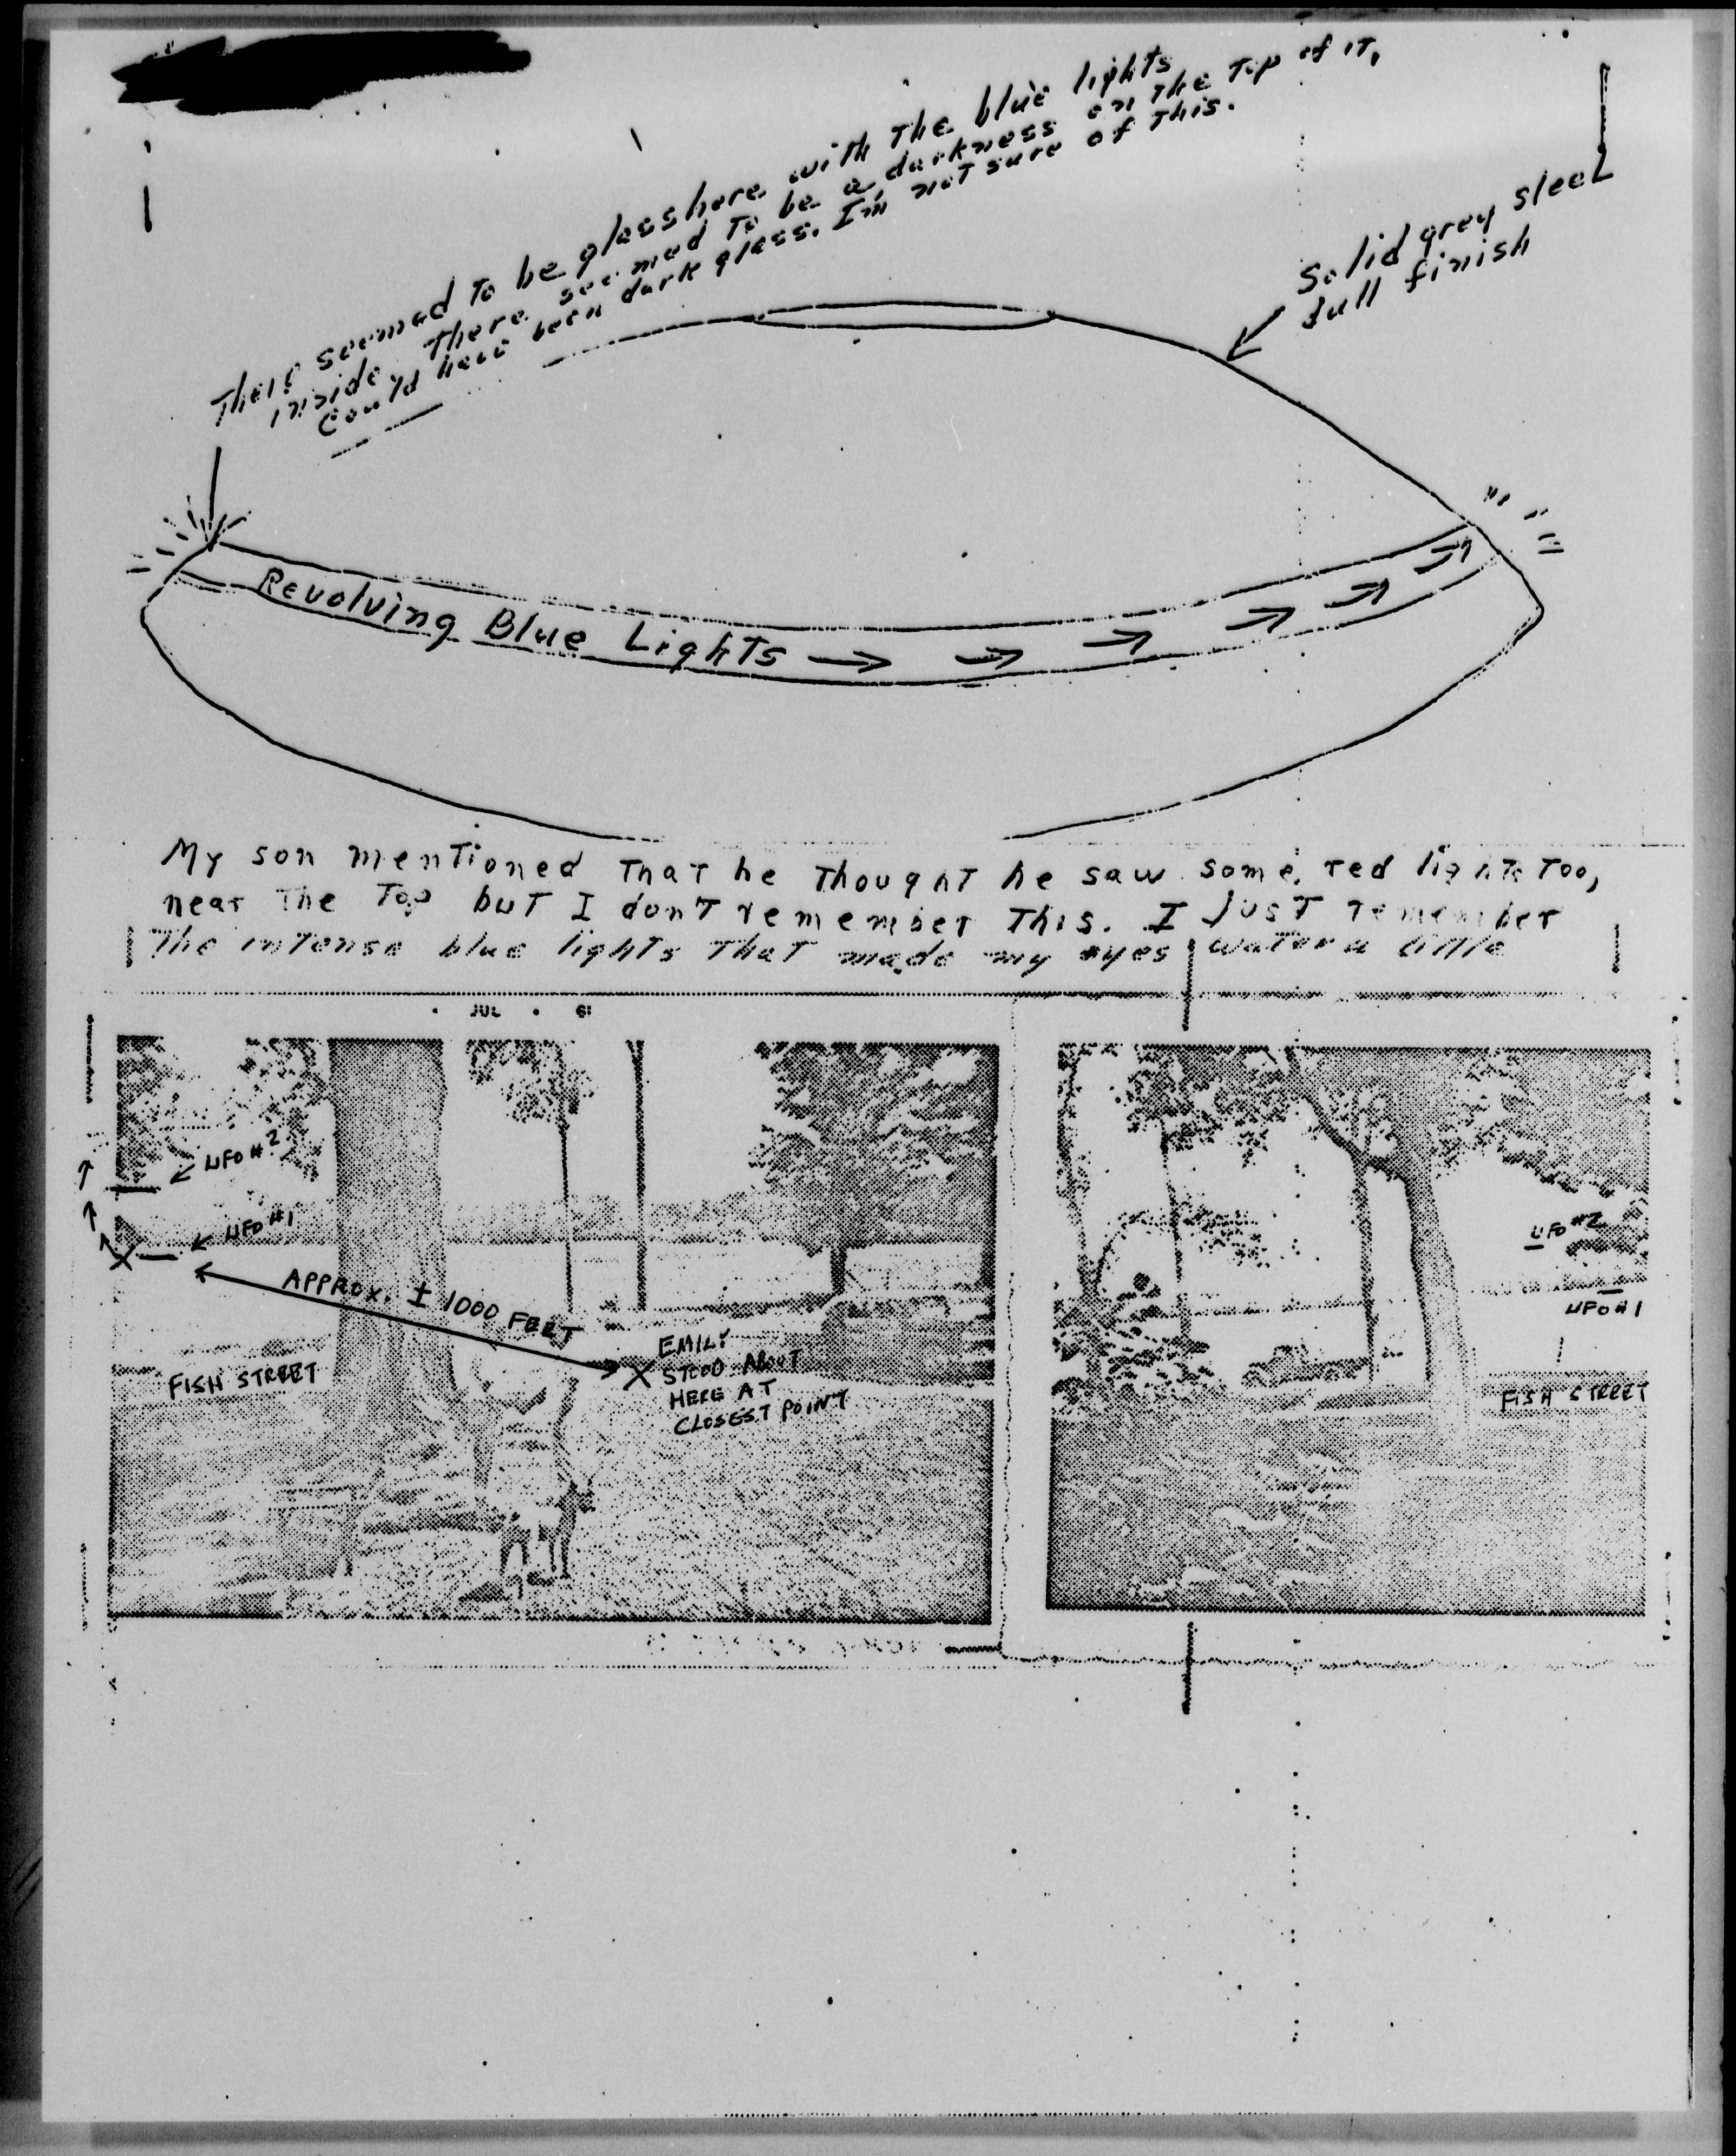 There seemed to be glass here with the blue lights
inside. There seemed to be a darkness on the top of it,
could have been dark glass. I'm not sure of this.
Solid grey steel
dull finish
Revolving Blue Lights
My son mentioned that he thought he saw some red lights too,
near the top but I don't remember this. I just remember
the intense blue lights that made my eyes water a little
JUL
UFO #2
UFO #1
APPROX. ± 1000 FEET
FISH STREET
EMILY
STOOD ABOUT
HERE AT
CLOSEST POINT
UFO #2
UFO #1
FISH STREET